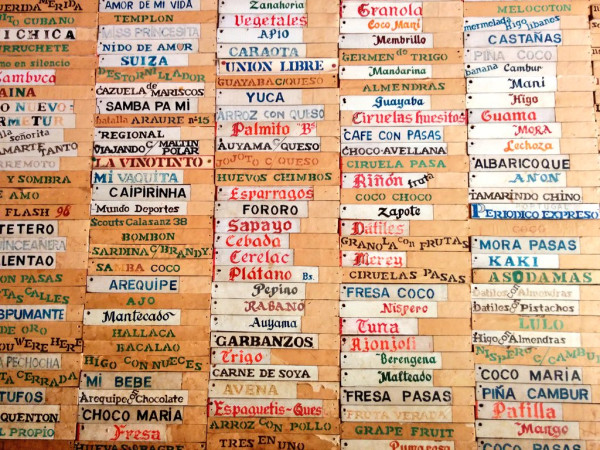 AMOR DE MI VIDA
TEMPLON
MISS PRINCESITA
NIDO DE AMOR
SUIZA
DESTORNILLADOR
CAZUELA DE MARISCOS
SAMBA PA MÍ
batalla ARAURE nº15
REGIONAL
VIAJANDO C/ MALTIN POLAR
LA VINOTINTO
MI VAQUITA
CAIPIRINHA
Mundo Deportes
Scouts Calasanz 38
BOMBON
SARDINA C/ BRANDY
SAMBA COCO
AREQUIPE
AJO
Mantecado
HALLACA
BACALAO
HIGO CON NUECES
MI BEBE
Arequipe Chocolate
CHOCO MARÍA
Fresa
Zanahoria
Vegetales
APIO
CARAOTA
UNION LIBRE
GUAYABA C/ QUESO
YUCA
ARROZ CON QUESO
Palmito Bs
AUYAMA C/ QUESO
JOJOTO C/ QUESO
HUEVOS CHIMBOS
Esparragos
FORORO
Sapayo
Cebada
Cerelac
Plátano Bs.
Pepino
RABANO
Auyama
GARBANZOS
Trigo
CARNE DE SOYA
AVENA
Espaguetis-Ques
ARROZ CON POLLO
TRES EN UNO
Granola
Coco Mani
Membrillo
GERMEN de TRIGO
Mandarina
ALMENDRAS
Guayaba
Ciruelas huesitos
CAFE CON PASAS
CHOCO-AVELLANA
CIRUELA PASA
Riñón fruta
COCO CHOCO
Zapote
Dátiles
GRANOLA con FRUTAS
Merey
CIRUELAS PASAS
FRESA COCO
Nispero
Tuna
Rionjoli
Berengena
Malteado
FRESA PASAS
FRUTA VERADA
GRAPE FRUIT
Pumarosa
MELOCOTON
CASTAÑAS
PIÑA COCO
banana Cambur
Mani
Higo
Guama
MORA
Lechoza
ALBARICOQUE
ANON
TAMARINDO CHINO
PERIODICO EXPRESO
COCO
MORA PASAS
KAKI
ASODAMAS
Datiles con Almendras
Datiles con Pistachos
LULO
Higo con Almendras
NISPERO C/ CAMBUR
COCO MARÍA
PIÑA CAMBUR
Patilla
Mango
COCO PASAS
CHICA
URRUCHETE
no en silencio
Sambuca
AINA
O NUEVO
RMETUR
señorita
AMARTE TANTO
RREMOTO
Y SOMBRA
E AMO
FLASH 96
TETERO
QUINCEAÑERA
ALENTAO
ON PASAS
TAS CALLES
SPUMANTE
DE ORO
YOU WERE HERE
A PECHOCHA
TA CERRADA
TUFOS
QUENTON
L PROPIO